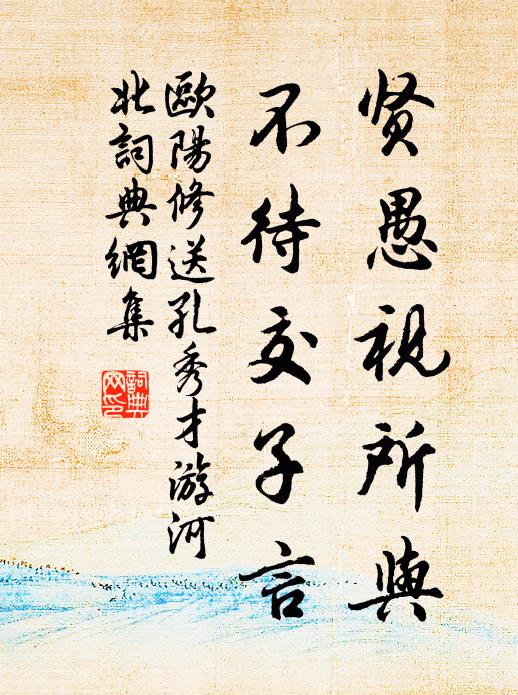 贤愚視所與
不待交子言
歐陽修送孔秀才游河
北詞典網集
詞典
网印